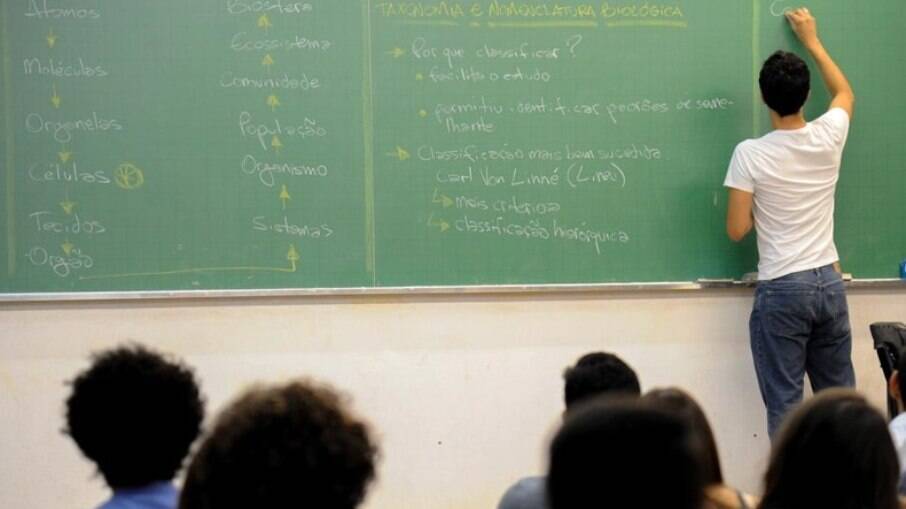 Átomos
Moléculas
Organelas
Células
Tecidos
Órgão
Biosfera
Ecossistema
Comunidade
População
Organismo
Sistemas
TAXONOMIA E NOMENCLATURA BIOLÓGICA
Por que classificar?
facilita o estudo
permitiu identificar padrões de seme-
lhante
Classificação mais bem sucedida
Carl Von Linné (Lineu)
mais criterioza
classificação hierárquica